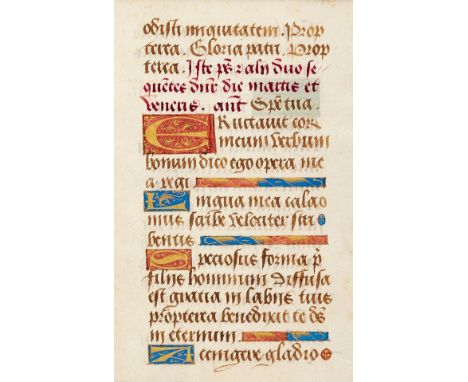 odisti iniquitatem. Prop
terea. Gloria patri. Prop
terea. Iste ps̄ ⁊ alij duo se
quētes dnr̄ die martis et
veneris. añt Spē tua.
ERuctavit cor
meum verbum
bonum dico ego opera me
a regi
Lingua mea calao
mus scribe velociter scri
bentis
Speciosus forma p̄
filijs hominum diffusa
est gratia in labijs tuis
propterea benedixit te dñs
in eternum
Accingere gladio